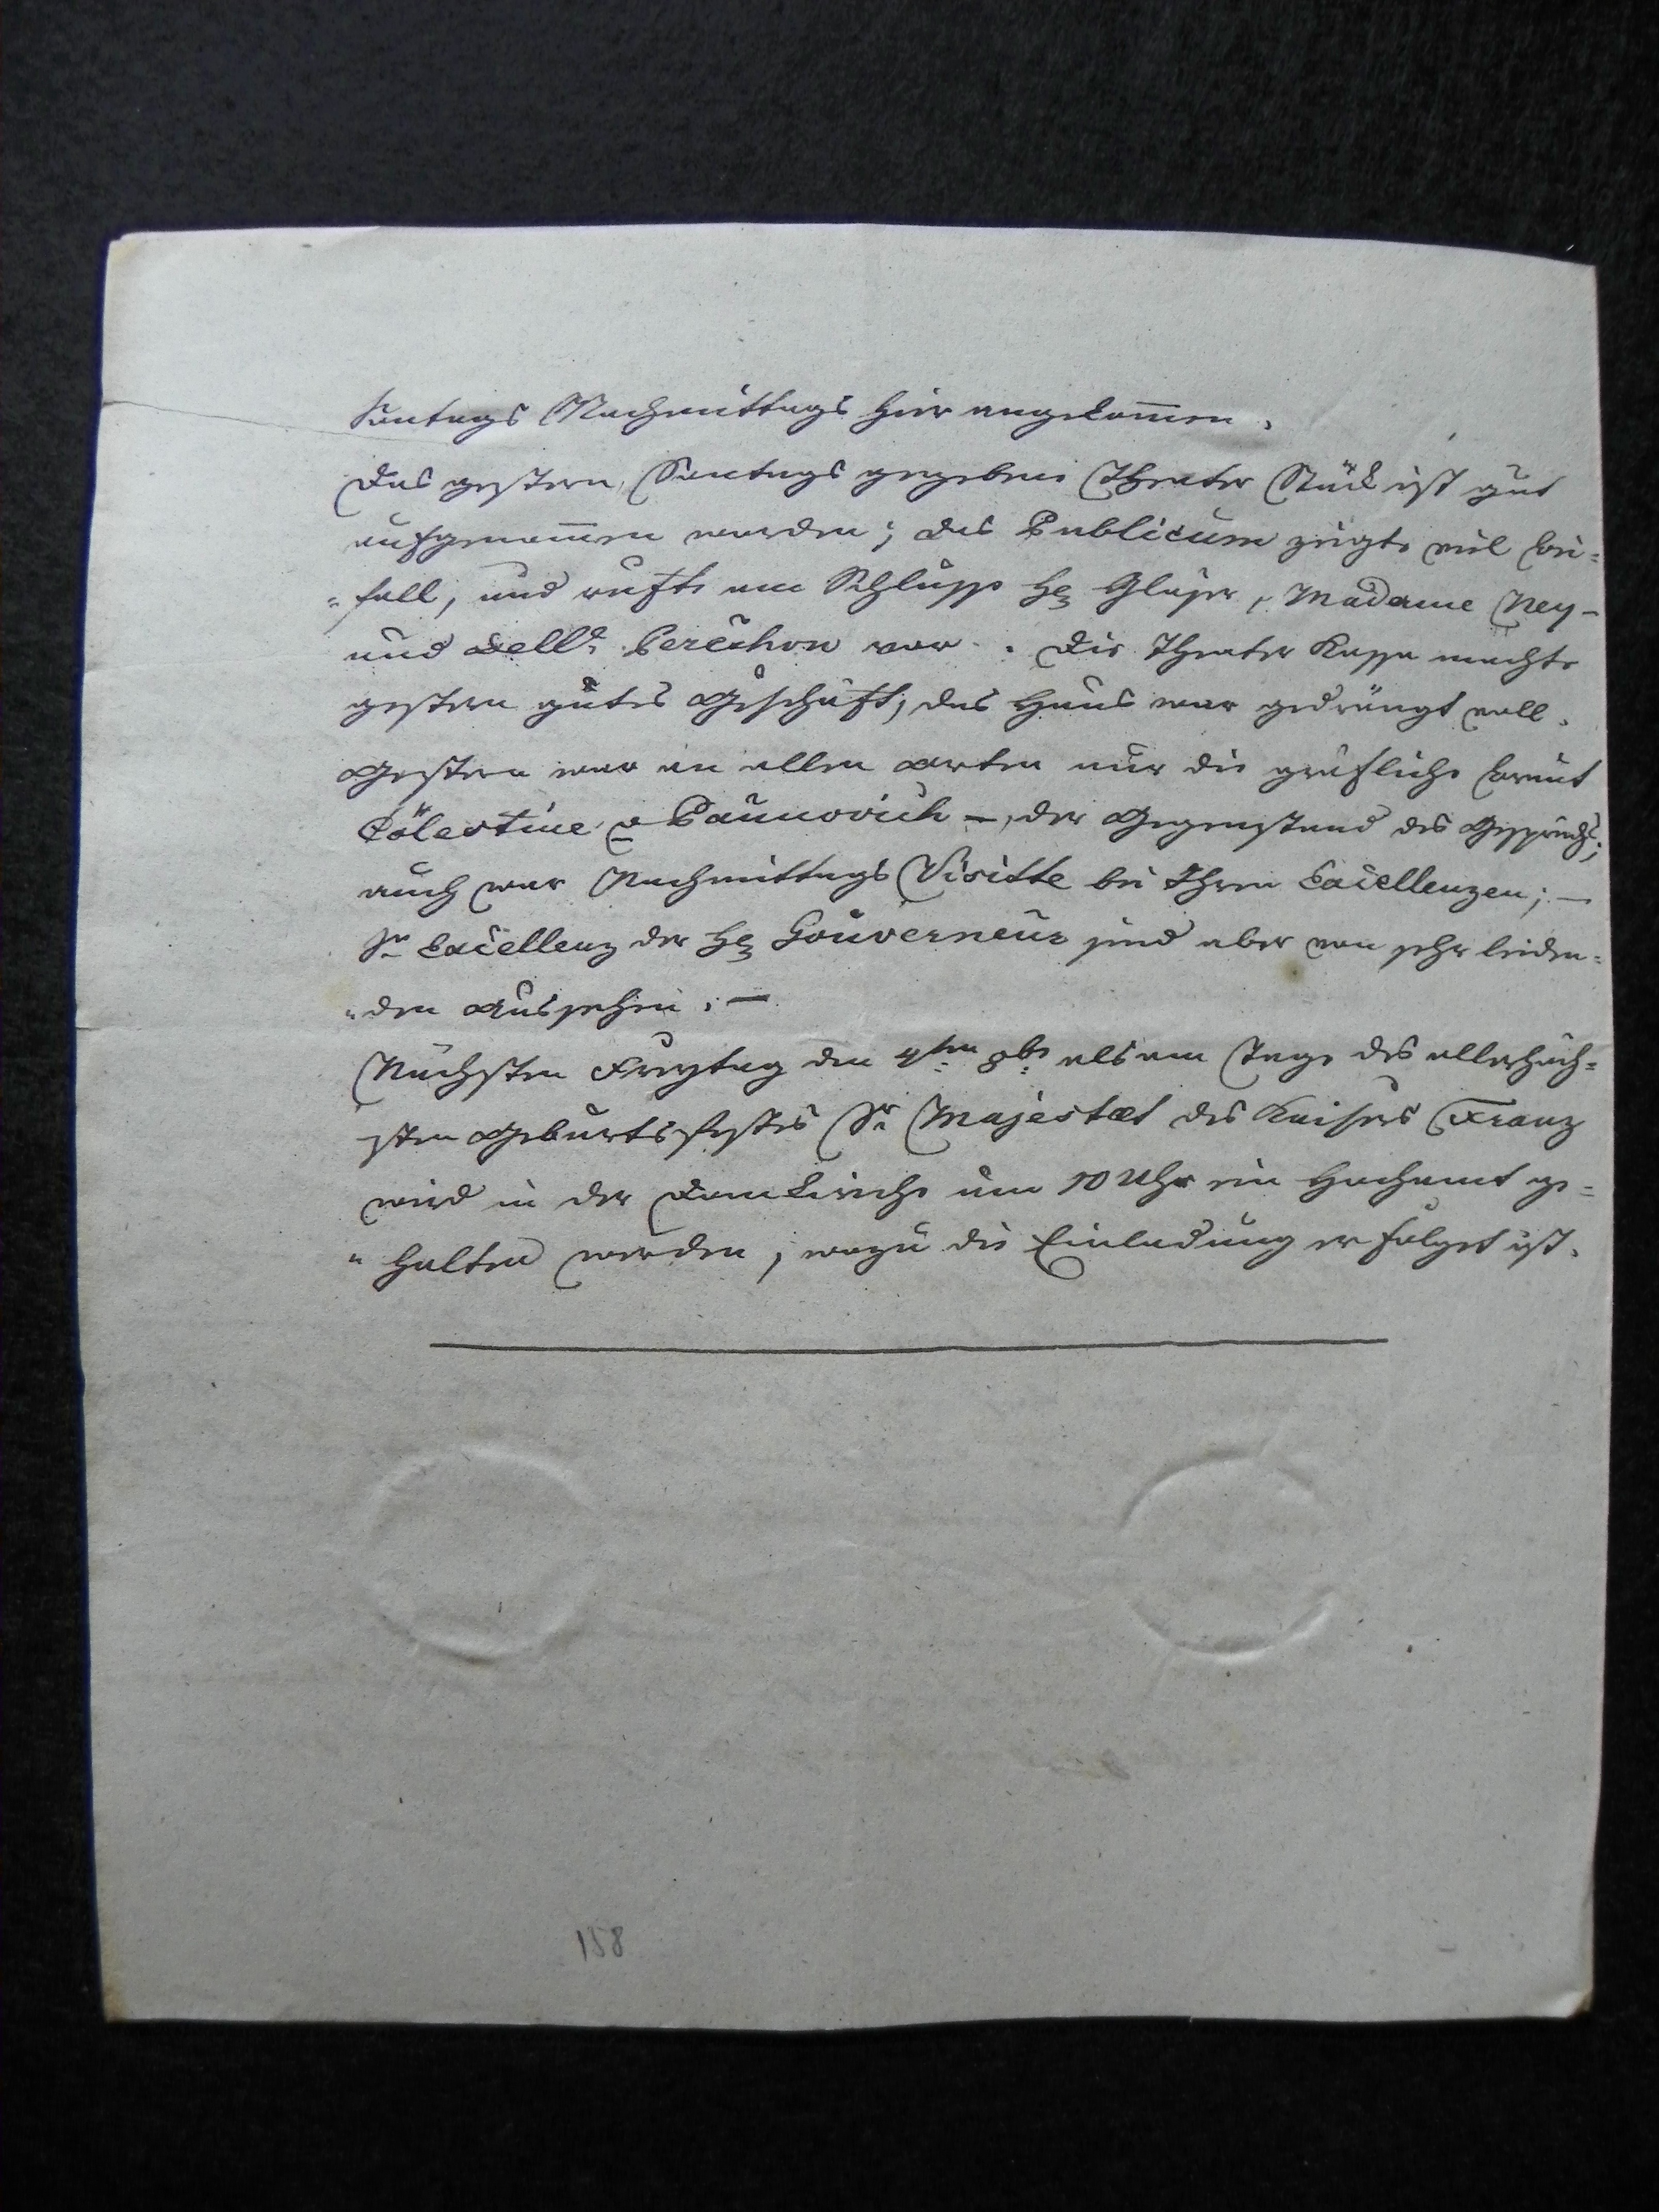 Sontags Nachmittags hier angekom̄en.
Das gestern, Sontags gegebene Theater Stück ist gut
aufgenom̄en worden; das Publicum zeigte viel bei=
=fall, und rufte am Schlusse H Glaser, Madame Ney-
und Dell. vor. Die Theater Kassa machte
gestern gutes Geschäft, das Haus war gedrängt voll.
Gestern war an allen Orten nur die gräfliche braut
Cölestine v Paumovich –, der Gegenstand des Gesprächs;
auch war Nachmittags Visitte bei Ihren Excellenzen; –
Sr Excellenz der H Gouverneur sind aber von sehr leiden=
=den Aussehen. –
Nächsten Freytag den 4ten 8br als am Tage des allerhöch=
sten Geburtsfestes Sr Majestæt des Kaisers Franz
wird in der Domkirche um 10 Uhr ein Hochamt ge=
=halten werden, wozu die Einladung erfolget ist.
158